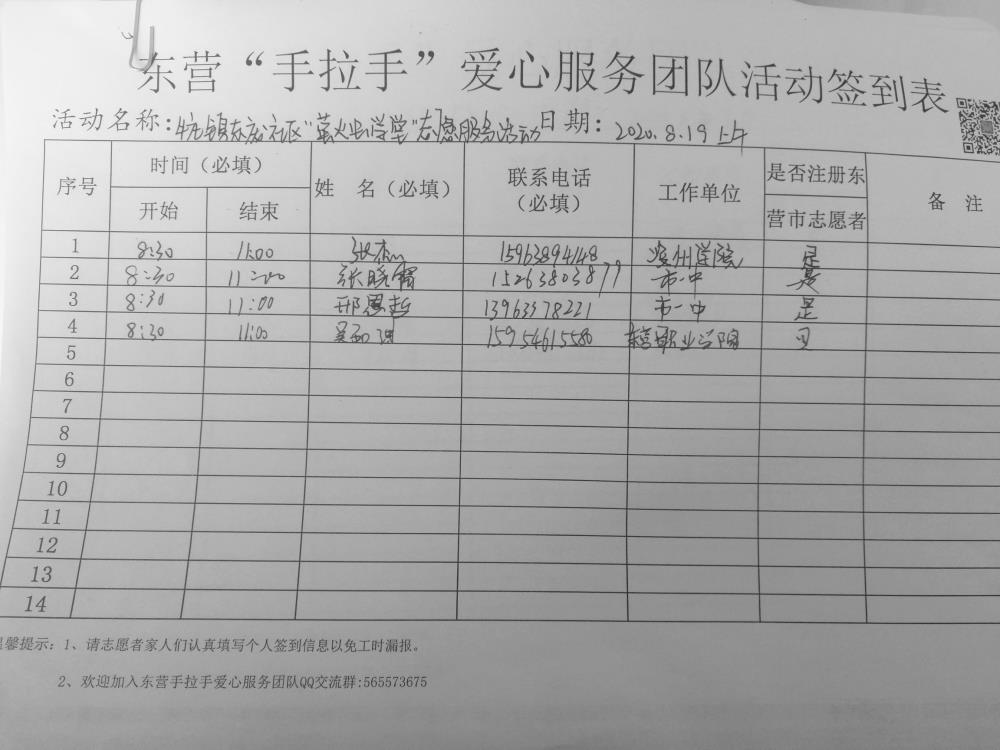 东营“手拉手”爱心服务团队活动签到表
活动名称: 社区“萤火虫学堂”志愿服务活动 日期: 2020.8.19 上午
序号 时间（必填） 姓 名（必填） 联系电话（必填） 工作单位 是否注册东营市志愿者 备 注
开始 结束
1 8:30 11:00 张杰 15963894148 滨州学院 是
2 8:30 11:00 张晓雷 15263803877 市一中 是
3 8:30 11:00 邢思哲 13963378221 市一中 是
4 8:30 11:00 15954615580 东营职业学院
5
6
7
8
9
10
11
12
13
14
温馨提示: 1、请志愿者家人们认真填写个人签到信息以免工时漏报。
2、欢迎加入东营手拉手爱心服务团队QQ交流群:565573675